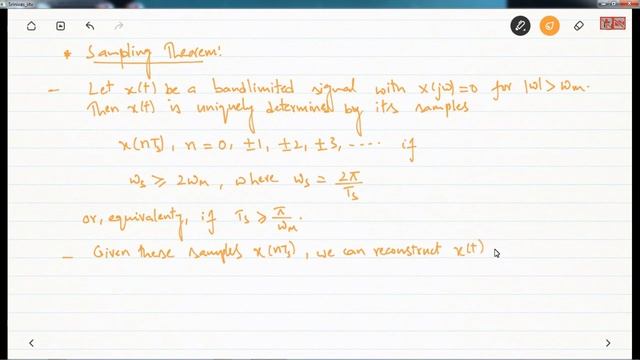 Srinivas_jtu
* Sampling Theorem:
- Let x(t) be a bandlimited signal with X(jω)=0 for |ω| > ωm.
Then x(t) is uniquely determined by its samples
x(nTs), n = 0, ±1, ±2, ±3, ..... if
ωs ≥ 2ωm, where ωs = 2π/Ts
or, equivalenty, if Ts ≥ π/ωM.
- Given these samples x(nTs), we can reconstruct x(t)